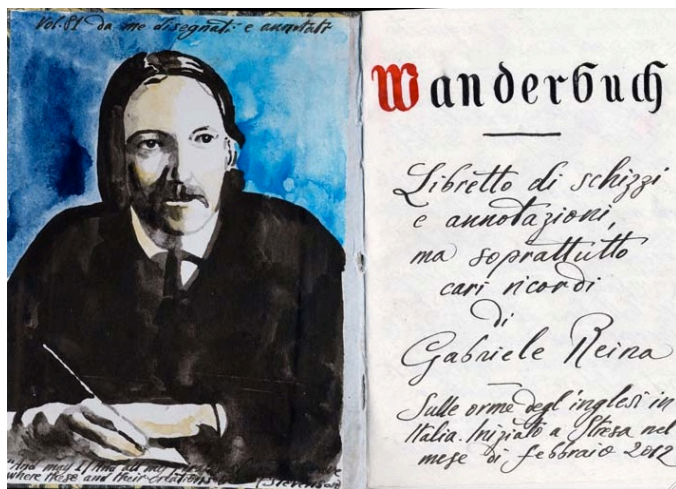 Vol. 81 da me disegnati e annotati
where these and their creations
(Stevenson)
Wanderbuch
Libretto di schizzi
e annotazioni,
ma soprattutto
cari ricordi
di
Gabriele Reina
Sulle orme degl'inglesi in
Italia. Iniziato a Stresa nel
mese di febbraio 2012